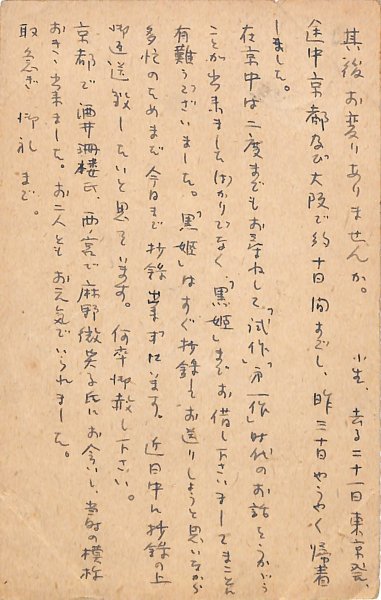 其後お変りありませんか。 小生、去る二十一日東京発、
途中京都及び大阪で約十日間すごし、昨三十日やうやく帰着
しました。
在京中は二度までもお尋ねして、「試作」「第一作」時代のお話をうかがう
ことが出来ましたばかりでなく、「黒姫」までお借し下さいましてまことに
有難うございました。「黒姫」はすぐ抄録してお送りしようと思いながら
多忙のためまだ今日まで抄録出来ずにいます。近日中に抄録の上
御返送致したいと思っています。何卒御赦し下さい。
京都で酒井 楼氏、西ノ宮で麻野微笑子氏にお会いし、当時の模様
おきゝ出来ました。お二人ともお元気でいられました。
取急ぎ 御礼 まで。